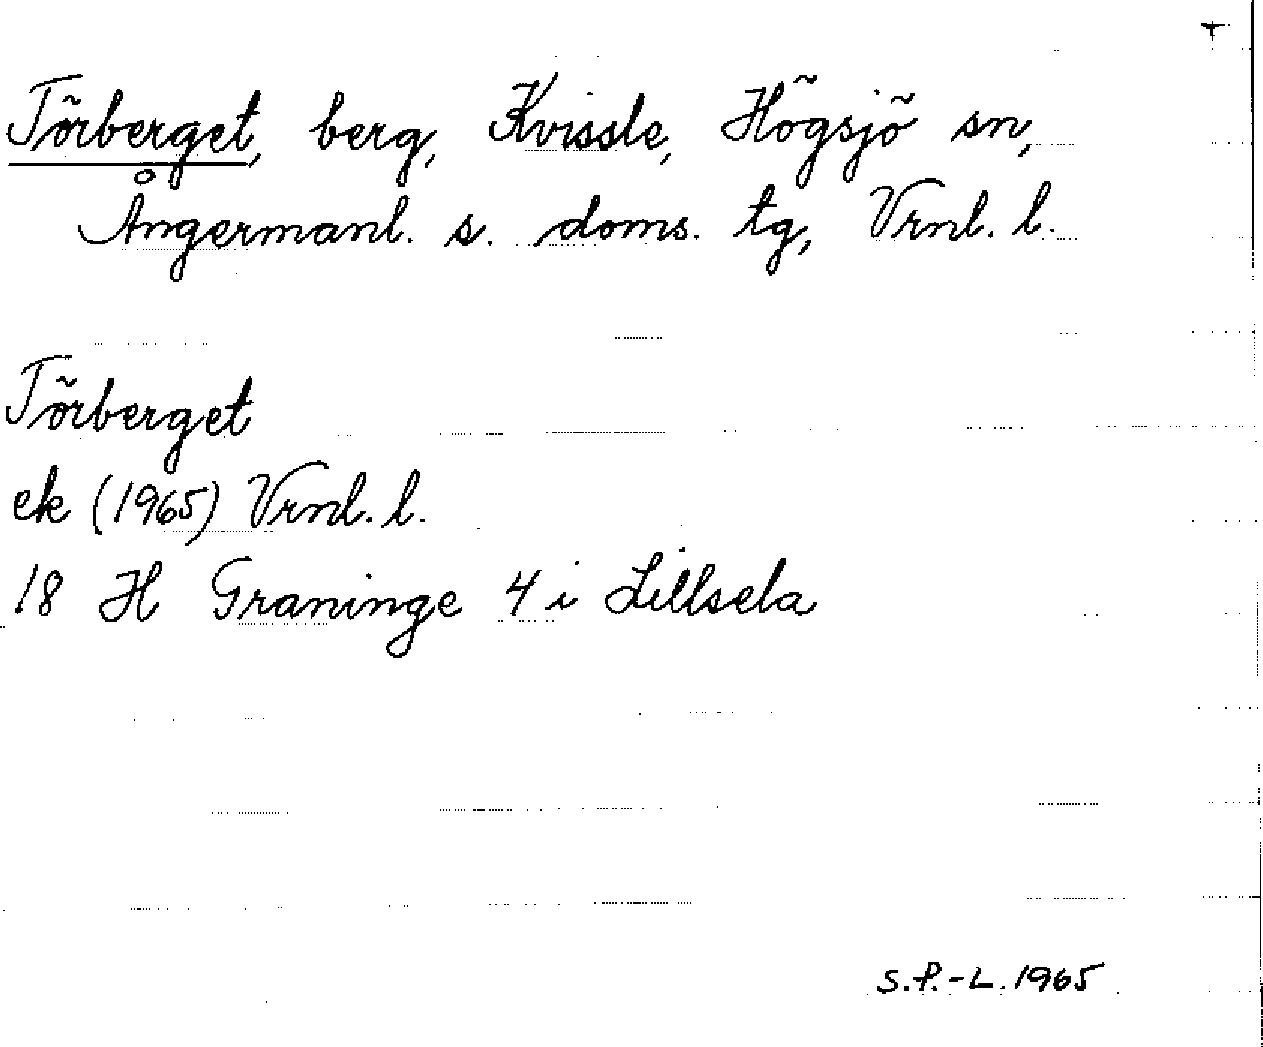 T
Törberget, berg, Kvissle, Högsjö sn,
Ångermanl. s. doms. tg, Vrnl. l.
Törberget
ek (1965) Vrnl. l.
18 H Graninge 4 i Lillsela
S.P.-L. 1965